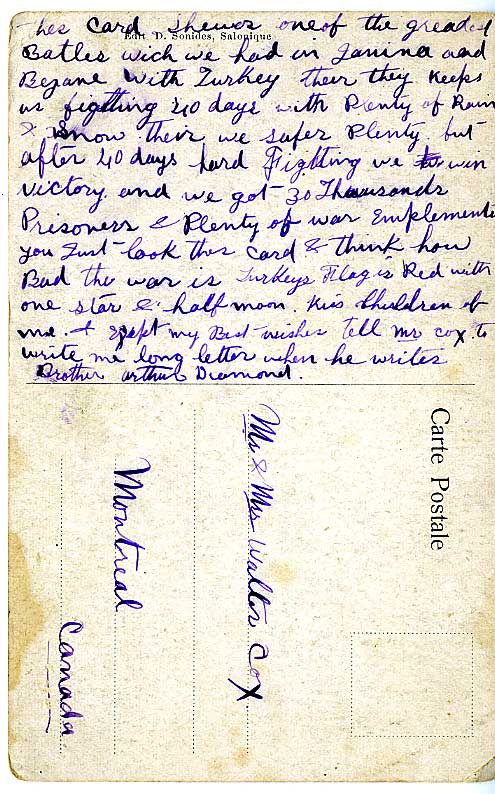 This Card Shewes one of the greadest
Edit D. Sonides, Salonique
Batles wich we had in Janina and
Bezane With Turkey their they Keeps
us figtting 40 days with Plenty of Rain
& Snow their we safer Plenty. but
after 40 days hard Figtting we win
victory. and we got 30 Thousands
Prisoners & Plenty of war Emplements
you Just look this card & think how
Bad the war is Turkeys Flag is Red with
one star & half moon. Kiss Children of
me. + Exept my Best wishes tell mr cox. to
write me long letter when he writes
Brother arthur Diamond.
Carte Postale
Mr & Mrs Walter Cox
Montreal
Canada